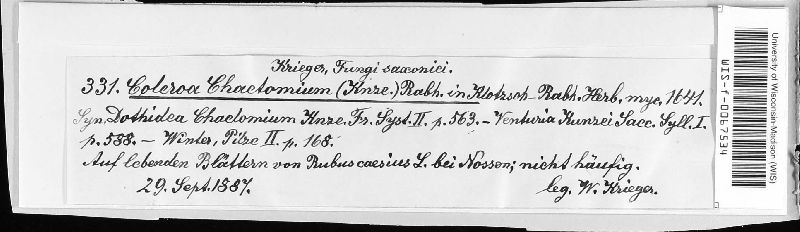 Krieger, Fungi saxonici.
331. Coleroa Chaetomium (Knze.) Rabh. in Klotzsch-Rabh. Herb. myc. 1641.
Syn. Dothidea Chaetomium Knze. Fr. Syst. II. p. 563. – Venturia Kunzei Sacc. Syll. I.
p. 588. – Winter, Pilze II. p. 168.
Auf lebenden Blättern von Rubus caesius L. bei Nossen; nicht häufig.
29. Sept. 1887. leg. W. Krieger.
WIS-f-0067534
University of Wisconsin-Madison (WIS)